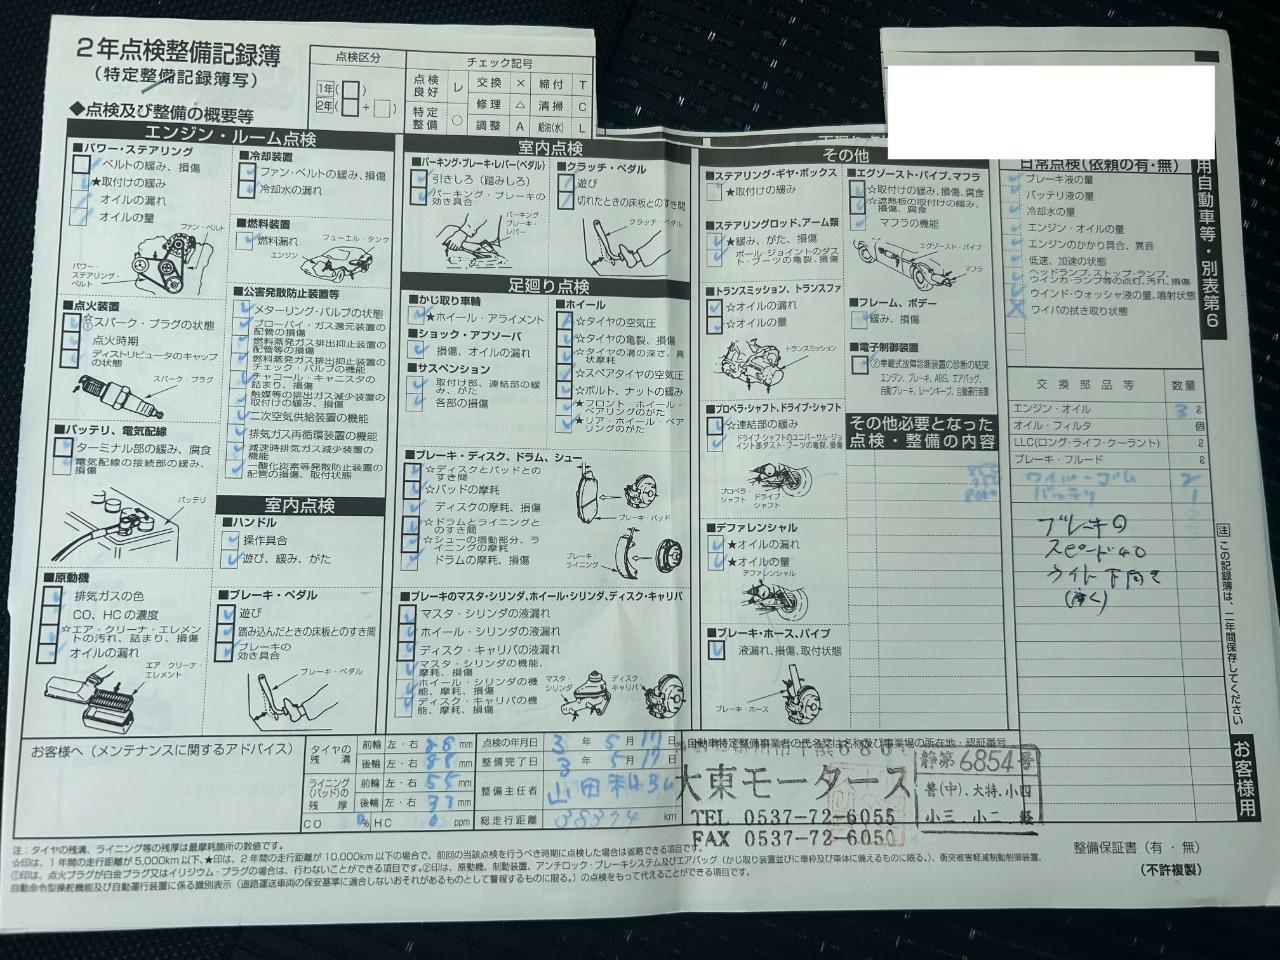 2年点検整備記録簿
(特定整備記録簿写)
点検区分
1年( )
2年( + )
チェック記号
点検良好 レ 交換 × 締付 T
修理 △ 清掃 C
特定整備 ○ 調整 A 給油(水) L
◆点検及び整備の概要等
エンジン・ルーム点検
■パワー・ステアリング
ベルトの緩み、損傷
★取付けの緩み
オイルの漏れ
オイルの量
ファン・ベルト
パワー・ステアリング・ベルト
■点火装置
☆①スパーク・プラグの状態
点火時期
ディストリビュータのキャップの状態
スパーク・プラグ
■バッテリ、電気配線
ターミナル部の緩み、腐食
電気配線の接続部の緩み、損傷
バッテリ
■原動機
排気ガスの色
CO、HCの濃度
☆エア・クリーナ・エレメントの汚れ、詰まり、損傷
オイルの漏れ
エア・クリーナ・エレメント
■冷却装置
ファン・ベルトの緩み、損傷
冷却水の漏れ
■燃料装置
燃料漏れ
フューエル・タンク
エンジン
■公害発散防止装置等
メターリング・バルブの状態
ブローバイ・ガス還元装置の配管の損傷
燃料蒸発ガス排出抑止装置の配管等の損傷
燃料蒸発ガス排出抑止装置のチェック・バルブの機能
チャコール・キャニスタの詰まり、損傷
触媒等の排出ガス減少装置の取付けの緩み、損傷
二次空気供給装置の機能
排気ガス再循環装置の機能
減速時排気ガス減少装置の機能
一酸化炭素等発散防止装置の配管の損傷、取付状態
室内点検
■ハンドル
操作具合
遊び、緩み、がた
■ブレーキ・ペダル
遊び
踏み込んだときの床板とのすき間
ブレーキの効き具合
ブレーキ・ペダル
室内点検
■パーキング・ブレーキ・レバー(ペダル)
引きしろ(踏みしろ)
パーキング・ブレーキの効き具合
パーキング・ブレーキ・レバー
■クラッチ・ペダル
遊び
切れたときの床板とのすき間
クラッチ・ペダル
足廻り点検
■かじ取り車輪
★ホイール・アライメント
■ショック・アブソーバ
損傷、オイルの漏れ
■サスペンション
取付部、連結部の緩み、がた
各部の損傷
■ホイール
☆タイヤの空気圧
☆タイヤの亀裂、損傷
☆タイヤの溝の深さ、異状摩耗
☆スペアタイヤの空気圧
☆ボルト、ナットの緩み
★フロント・ホイール・ベアリングのがた
★リヤ・ホイール・ベアリングのがた
■ブレーキ・ディスク、ドラム、シュー
☆ディスクとパッドとのすき間
☆パッドの摩耗
ディスクの摩耗、損傷
☆ドラムとライニングとのすき間
☆シューの摺動部分、ライニングの摩耗
ドラムの摩耗、損傷
ブレーキ・パッド
ブレーキ・ライニング
■ブレーキのマスタ・シリンダ、ホイール・シリンダ、ディスク・キャリパ
マスタ・シリンダの液漏れ
ホイール・シリンダの液漏れ
ディスク・キャリパの液漏れ
マスタ・シリンダの機能、摩耗、損傷
ホイール・シリンダの機能、摩耗、損傷
ディスク・キャリパの機能、摩耗、損傷
マスタ・シリンダ
ディスク・キャリパ
その他
■ステアリング・ギヤ・ボックス
★取付けの緩み
■ステアリングロッド、アーム類
★緩み、がた、損傷
ボール・ジョイントのダスト・ブーツの亀裂、損傷
■トランスミッション、トランスファ
☆オイルの漏れ
☆オイルの量
トランスミッション
■プロペラ・シャフト、ドライブ・シャフト
☆連結部の緩み
ドライブ・シャフトのユニバーサル・ジョイント部ダスト・ブーツの亀裂、損傷
プロペラ・シャフト
ドライブ・シャフト
■デファレンシャル
★オイルの漏れ
★オイルの量
デファレンシャル
■ブレーキ・ホース、パイプ
液漏れ、損傷、取付状態
ブレーキ・ホース
■エグゾースト・パイプ、マフラ
☆取付けの緩み、損傷、腐食
☆遮熱板の取付けの緩み、損傷、腐食
マフラの機能
エグゾースト・パイプ
マフラ
■フレーム、ボデー
緩み、損傷
■電子制御装置
②車載式故障診断装置の診断の結果
エンジン、ブレーキ、ABS、エアバッグ、自動ブレーキ、レーンキープ、自動運行装置
その他必要となった点検・整備の内容
日常点検(依頼の有・無)
ブレーキ液の量
バッテリ液の量
冷却水の量
エンジン・オイルの量
エンジンのかかり具合、異音
低速、加速の状態
ヘッドランプ、ストップ・ランプ、ウインカ・ランプ等の点灯、汚れ、損傷
ウインド・ウォッシャ液の量、噴射状態
ワイパの拭き取り状態
用自動車等・別表第6
交換部品等 数量
エンジン・オイル 3 ℓ
オイル・フィルタ 個
LLC(ロング・ライフ・クーラント) ℓ
ブレーキ・フルード ℓ
ワイパーゴム 2
バッテリ 1
ブレーキの
スピード40
ライト下向き
注 この記録簿は、二年間保存してください
お客様用
お客様へ(メンテナンスに関するアドバイス)
タイヤの残溝 前輪 左・右 88 mm
後輪 左・右 88 mm
ライニング(パッド)の残厚 前輪 左・右 55 mm
後輪 左・右 33 mm
CO 0% HC 0 ppm
点検の年月日 3年5月17日
整備完了日 3年5月17日
整備主任者 山田
総走行距離 38374 km
自動車特定整備事業者の氏名又は名称及び事業場の所在地・認証番号
大東モータース
TEL 0537-72-6055
FAX 0537-72-6050
静第6854号
普(中).大特.小四
小三.小二.軽
注:タイヤの残溝、ライニング等の残厚は最摩耗箇所の数値です。
☆印は、1年間の走行距離が5,000km以下、★印は、2年間の走行距離が10,000km以下の場合で、前回の当該点検を行うべき時期に点検した場合は省略できる項目です。
①印は、点火プラグが白金プラグ又はイリジウム・プラグの場合は、行わないことができる項目です。②印は、原動機、制動装置、アンチロック・ブレーキシステム及びエアバッグ(かじ取り装置並びに車枠及び車体に備えるものに限る。)、衝突被害軽減制動制御装置、
自動命令型操舵機能及び自動運行装置に係る識別表示(道路運送車両の保安基準に適合しないおそれがあるものとして警報するものに限る。)の点検をもって代えることができる項目です。
整備保証書(有・無)
(不許複製)